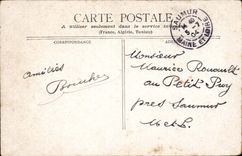 CARTE POSTALE
A utiliser seulement dans le service intérieur
(France, Algérie, Tunisie)
CORRESPONDANCE
SAUMUR
MAINE ET LOIRE
Amitiés
Monsieur
Maurice Rouault
au Petit Puy
près Saumur
M et L.